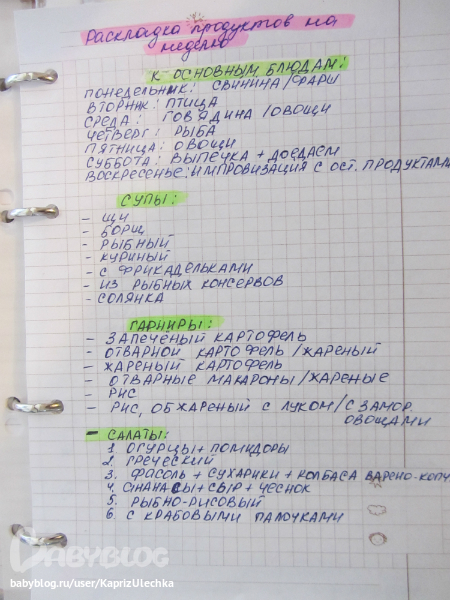 Раскладка продуктов на
неделю
К ОСНОВНЫМ БЛЮДАМ:
ПОНЕДЕЛЬНИК: СВИНИНА/ФАРШ
ВТОРНИК: ПТИЦА
СРЕДА: ГОВЯДИНА/ОВОЩИ
ЧЕТВЕРГ: РЫБА
ПЯТНИЦА: ОВОЩИ
СУББОТА: ВЫПЕЧКА + ДОЕДАЕМ
ВОСКРЕСЕНЬЕ: ИМПРОВИЗАЦИЯ С ОСТ. ПРОДУКТАМИ
СУПЫ:
- ЩИ
- БОРЩ
- РЫБНЫЙ
- КУРИНЫЙ
- С ФРИКАДЕЛЬКАМИ
- ИЗ РЫБНЫХ КОНСЕРВОВ
- СОЛЯНКА
ГАРНИРЫ:
- ЗАПЕЧЕНЫЙ КАРТОФЕЛЬ
- ОТВАРНОЙ КАРТОФЕЛЬ/ЖАРЕНЫЙ
- ЖАРЕНЫЙ КАРТОФЕЛЬ
- ОТВАРНЫЕ МАКАРОНЫ/ЖАРЕНЫЕ
- РИС
- РИС, ОБЖАРЕНЫЙ С ЛУКОМ/С ЗАМОР.
ОВОЩАМИ
- САЛАТЫ:
1. ОГУРЦЫ + ПОМИДОРЫ
2. ГРЕЧЕСКИЙ
3. ФАСОЛЬ + СУХАРИКИ + КОЛБАСА ВАРЕНО-КОПЧ
4. АНАНАСЫ + СЫР + ЧЕСНОК
5. РЫБНО-РИСОВЫЙ
6. С КРАБОВЫМИ ПАЛОЧКАМИ
BABYBLOG
babyblog.ru/user/KaprizUlechka